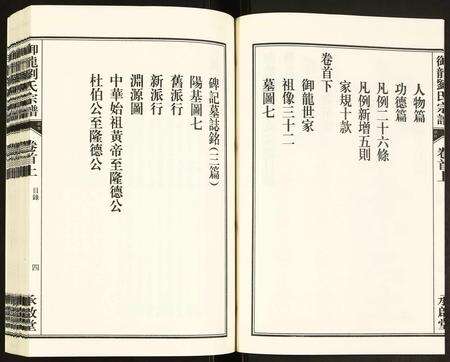 御龍劉氏宗譜
卷首上
承啟堂
人物篇
功德篇
凡例二十六條
凡例新增五則
家規十款
卷首下
御龍世家
祖像三十二
墓圖七
碑記墓誌銘(三篇)
陽基圖七
舊派行
新派行
淵源圖
中華始祖黃帝至隆德公
杜伯公至隆德公
御龍劉氏宗譜
卷首上
目錄
四
承啟堂